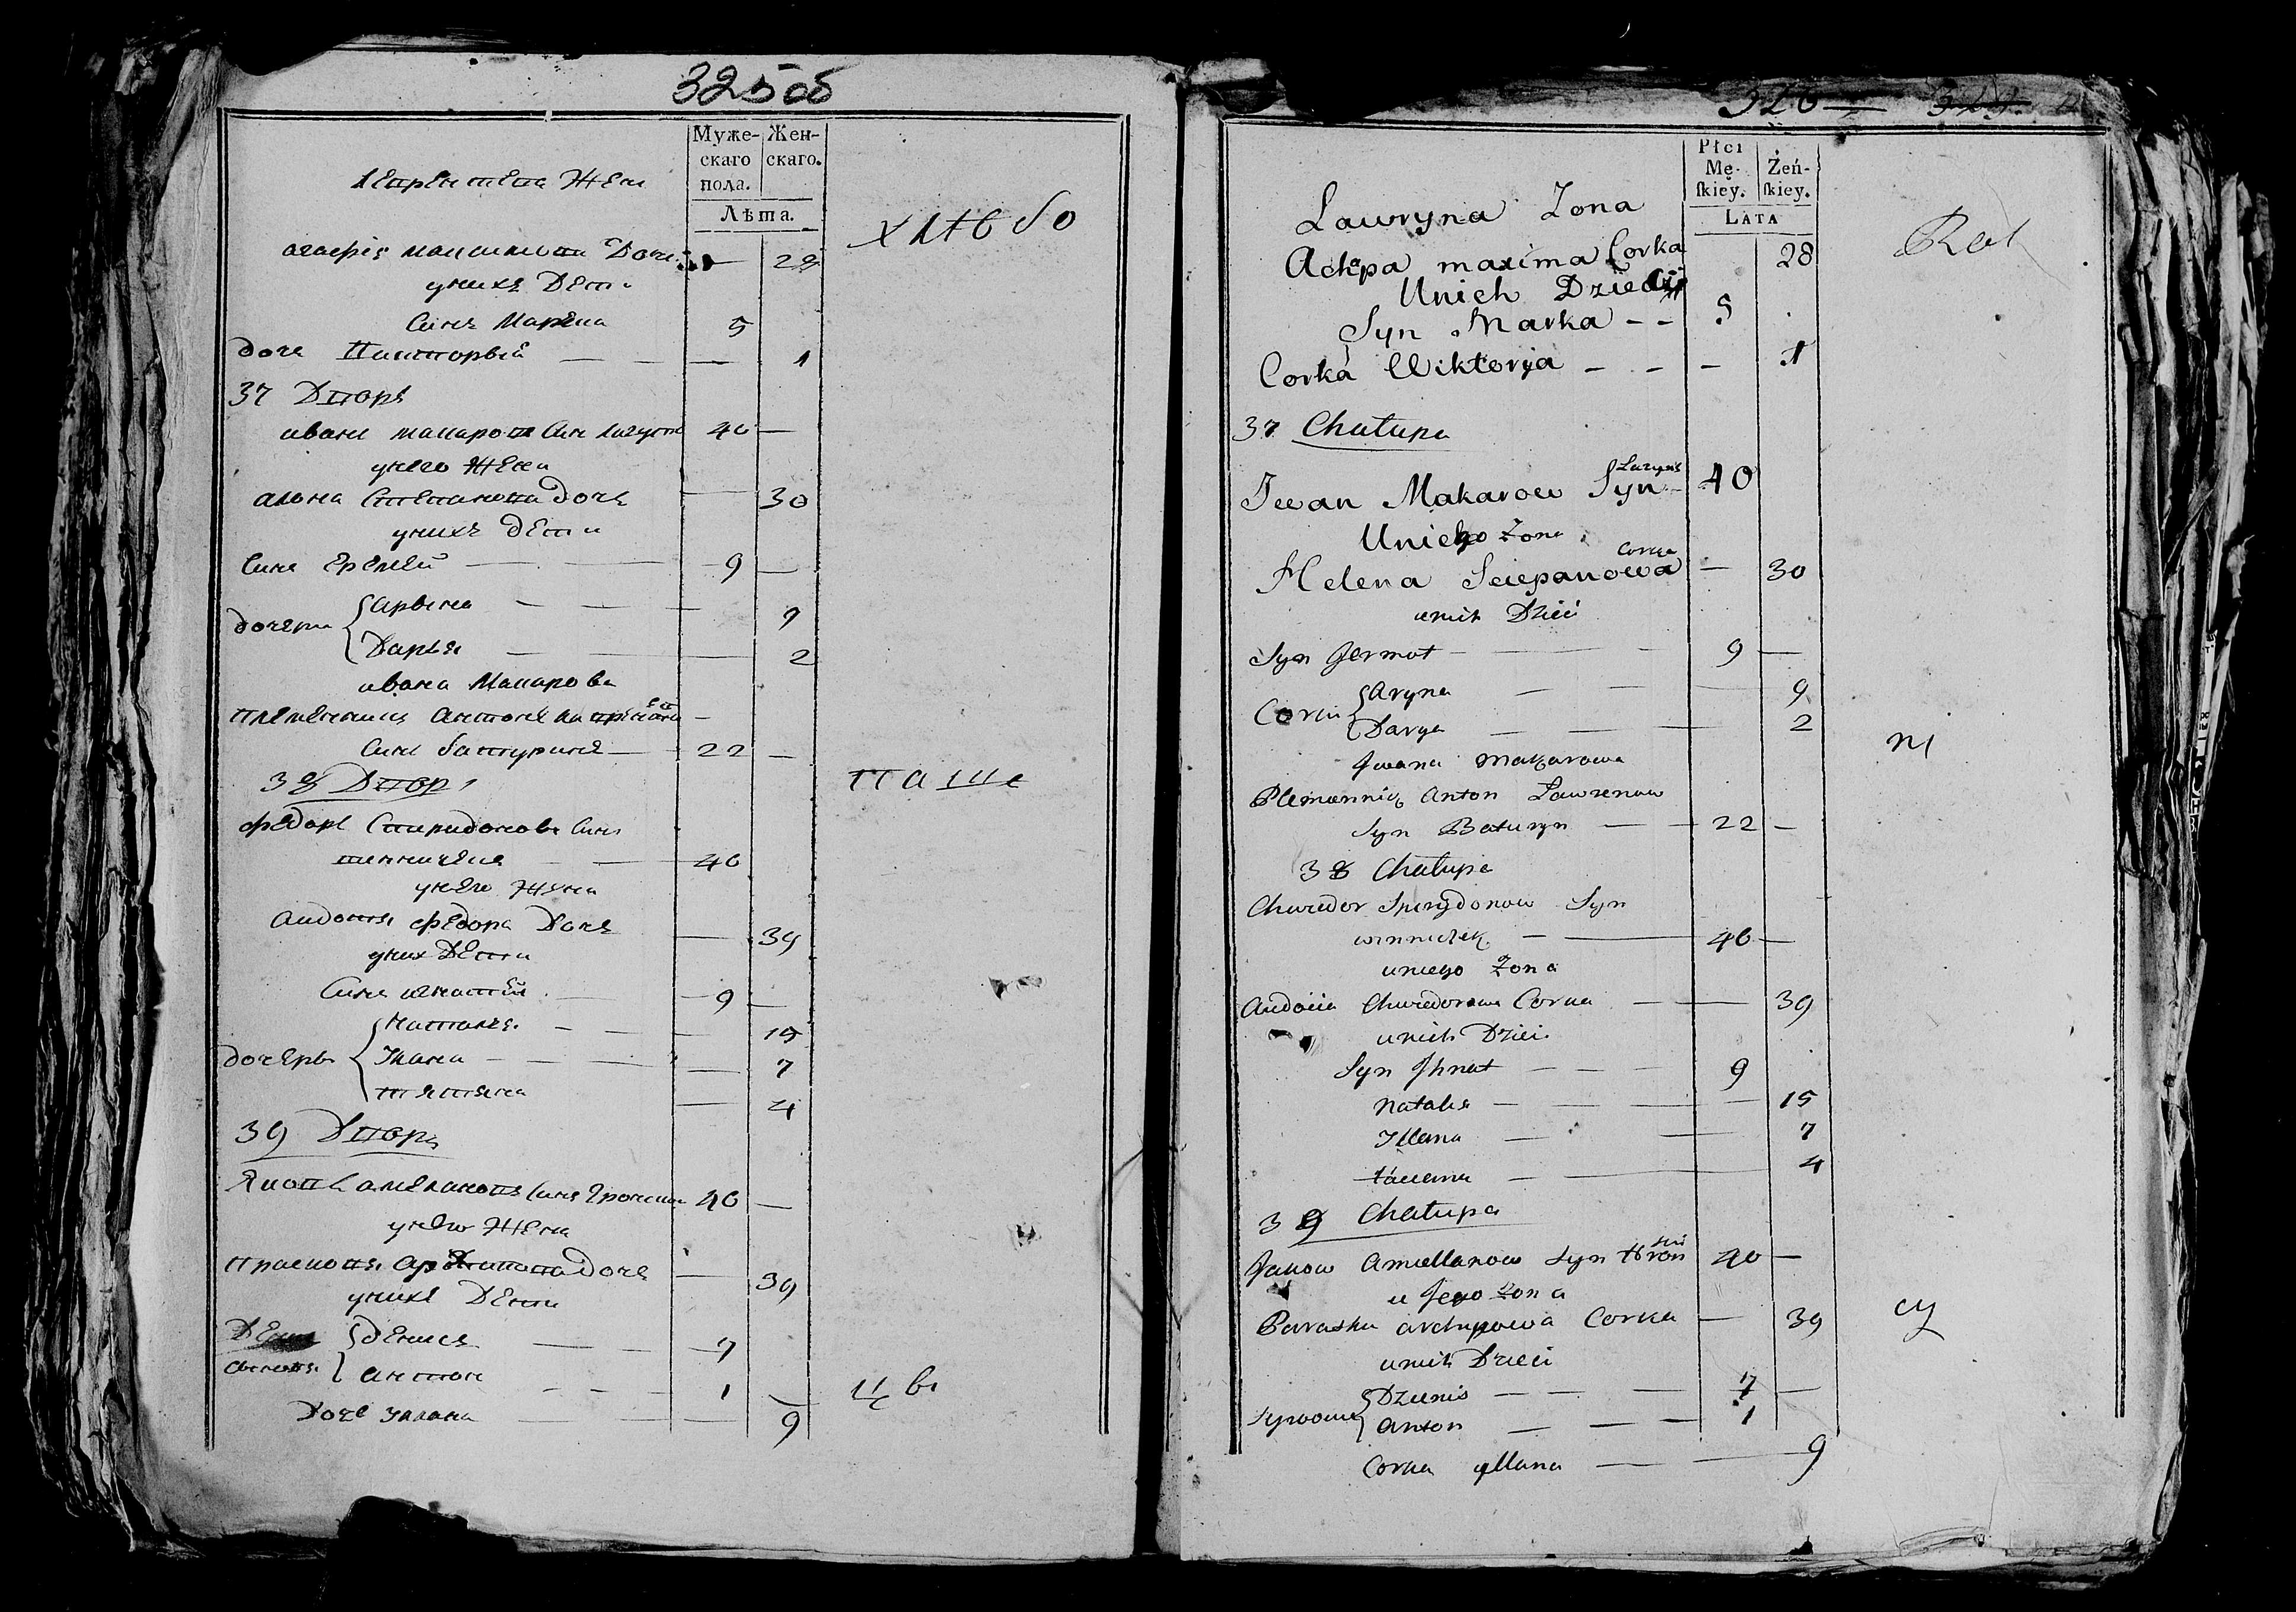 325об
Муже-
скаго
пола.
Жен-
скаго.
Лѣта.
жена
Дочь 28
унихъ Дети
Синъ Марко 5
дочь Викторыя — — — 1
37 Дворъ
иванъ макаровъ синъ 40 —
унего жена
алона степанова дочь — 30
унихъ дети
Синъ Еремей — — 9 —
дочери { арына — — — 9
Дарья — — 2
ивана Макарова
племенникъ антонъ —
синъ батуринъ — 22 —
38 Дворъ
федоръ Спиридоновъ Синъ
винничекъ — — 40
унего жена
авдотя федора Дочь — 39
уних Дети
Синъ игнатей — — 9 —
дочеры { Наталья — — — 15
Улана — — — 7
татяна — 4
39 Дворъ
Яковъ амеляновъ синъ 40 —
унего жена
прасковя архипова дочь — 39
унихъ Дети
{ денисъ — — 7
антон — — — 1
Дочь улана — — 9
хлѣбо
паше
цы
326
Płci
Mę-
skiey.
Żeń-
skiey.
LATA
Lawryna Zona
Achapa maxima Corka 28
Unich Dzieci
Syn Marka – – 5
Corka Wiktorya – – – 1
37 Chatupa
Iwan Makarow Syn 40
Uniego Zona
Helena Sciepanowa Corka — 30
unich Dzieci
Syn Jermot — — 9 —
Corki { Aryna — — — 9
Darya — — 2
Jwana Makarowa
Plemiennik Anton Lawrenow
Syn Baturyn — — 22 —
38 Chatupa
Chwedor Spirydonow Syn
winniczek — — 40 —
uniego Zona
Audocia Chwedorowa Corka — — 39
unich Dzieci
Syn Jhnat — — — 9
Natalia — — — 15
Jllana — — 7
taciana — 4
39 Chatupa
Jakow Amiellanow Syn 40 —
u Jego Zona
Paraska archipowa Corka — 39
unich Dzieci
Synowie { Dzienis — — — 7 —
Anton — — — 1
Corka yllana — — 9
Rol
ni
cy